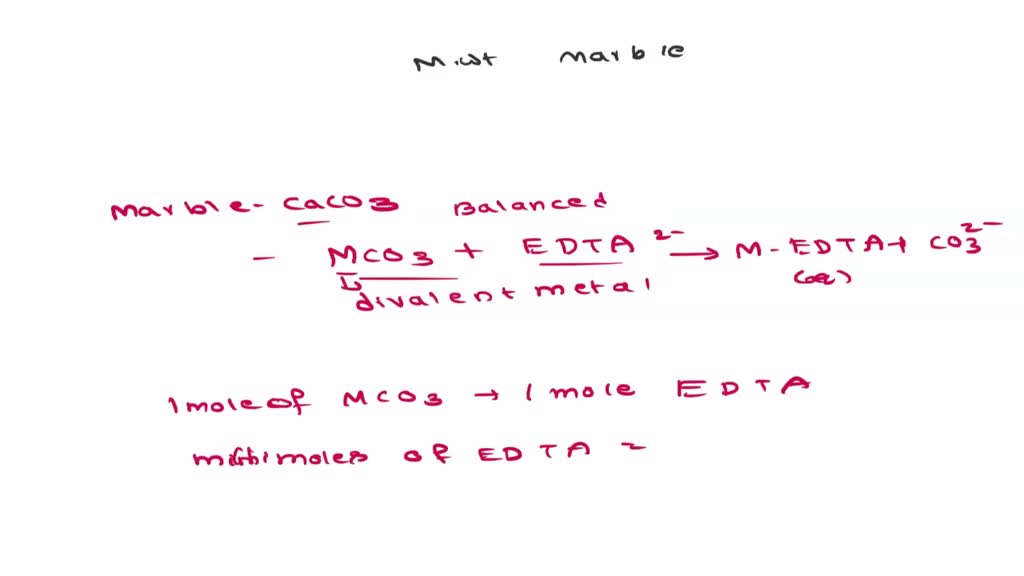 M.wt marble
Marble - CaCO3 Balanced
- MCO3 + EDTA 2- → M-EDTA + CO3 2-
(aq)
divalent metal
1 mole of MCO3 → 1 mole EDTA
moles of EDTA =